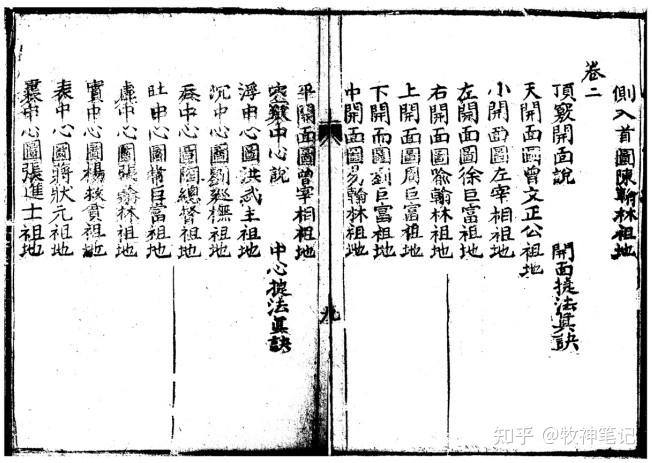 側入首圖陳翰林祖地
卷二
頂竅開面說 開面挨法真訣
天開面圖曾文正公祖地
小開面圖左宰相祖地
左開面圖徐巨富祖地
右開面圖翰林祖地
上開面圖周巨富祖地
下開面圖劉巨富祖地
中開面圖易翰林祖地
平開面圖曾宰相祖地
中心說 中心挨法真訣
浮中心圖洪武主祖地
沉中心圖劉巡撫祖地
吞中心圖陶總督祖地
吐中心圖巨富祖地
虛中心圖張翰林祖地
實中心圖楊拔貢祖地
表中心圖蔣狀元祖地
裏中心圖張進士祖地
九
知乎 @牧神笔记